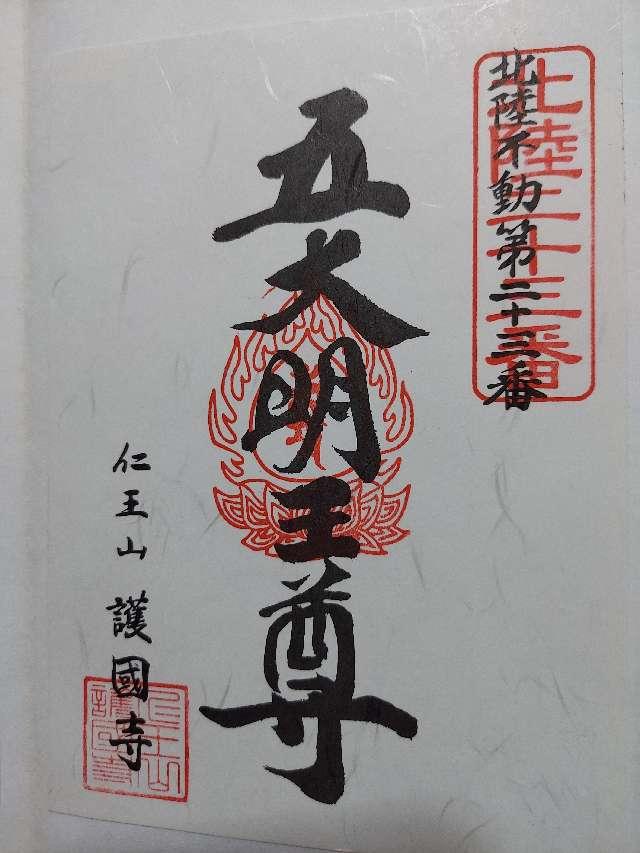 北陸不動第二十三番
北陸二十三番
五大明王尊
仁王山 護國寺
仁王山
護国寺